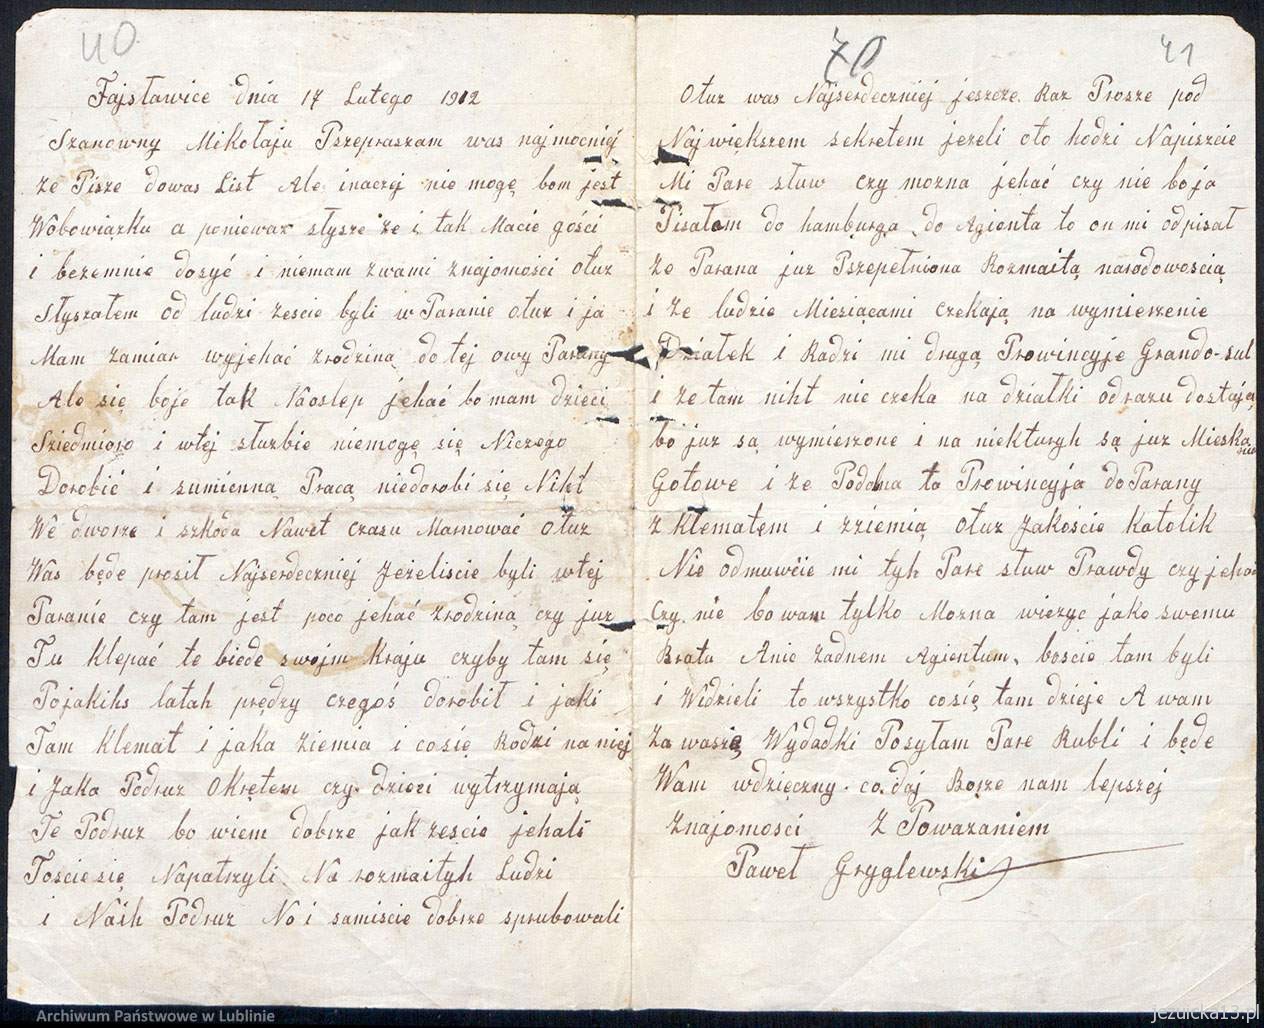 40
Fajsławice dnia 17 Lutego 1912
Szanowny Mikołaju Pszepraszam was najmocnij
że Pisze dowas List Ale inaczej nie mogę bom jest
Wobowiązku a poniewaz słysze że i tak Macie gości
i bezemnie dosyć i niemam zwami znajomości Otuz
Słyszałem od ludzi żeście byli w Paranie otuz i ja
Mam zamiar wyjehać zrodziną do tej owy Parany
Ale się boje tak Naoslep jehać bo mam dzieci
Sziedmioro i wtej służbie niemogę się Niczego
Dorobić i sumienną Pracą niedorobi się Niht
We dworze i szkoda Nawet czasu Marnować Otuz
Was będe prosił Najserdeczniej Jeżeliście byli wtej
Paranie czy tam jest poco jehać zrodziną czy juz
Tu klepać te biede swojm Kraju czyby tam się
Pojakihs latah prędzy czegoś dorobił i jaki
Tam Klemat i jaka ziemia i cosię Rodzi na niej
i Jaka Podruz Okrętem czy dzieci wytrzymają
Te Podruz bo wiem dobrze jak żeście jehali
Tościesię Napatrzyli Na rozmaityh Ludzi
i Naih Podruz No i samiście dobrze sprubowali
70 41
Otuz was Najserdeczniej jeszcze Raz Prosze pod
Największem sekretem jeżeli oto hodzi Napiszcie
Mi Pare słuw czy mozna jehać czy nie bo ja
Pisałem do hamburga do Agienta to on mi odpisał
że Parana juz Pszepełniona Rozmaitą narodowoscią
i że ludzie Miesiącami czekają na wymierzenie
Działek i Radzi mi drugą Prowincyje Grando-sul
i że tam niht nie czeka na działki odrazu dostają
bo juz są wymierzone i na niekturyh są juz Mieskania
Gotowe i że Podobna ta Prowincyja do Parany
z Klematem i zziemią Otuz Jakoście Katolik
Nie odmuwcie mi tyh Pare słuw Prawdy czy jehać
Czy nie bo wam tylko Mozna wierzyc jako swemu
Bratu Anie żadnem Agientum, boście tam byli
i Widzieli to wszystko cosię tam dzieje A wam
Za wasze Wydadki Posyłam Pare Rubli i będe
Wam wdzięczny co daj Borze nam lepszej
znajomosci Z Powazaniem
Paweł Gryglewski
Archiwum Państwowe w Lublinie
jezuicka13.pl